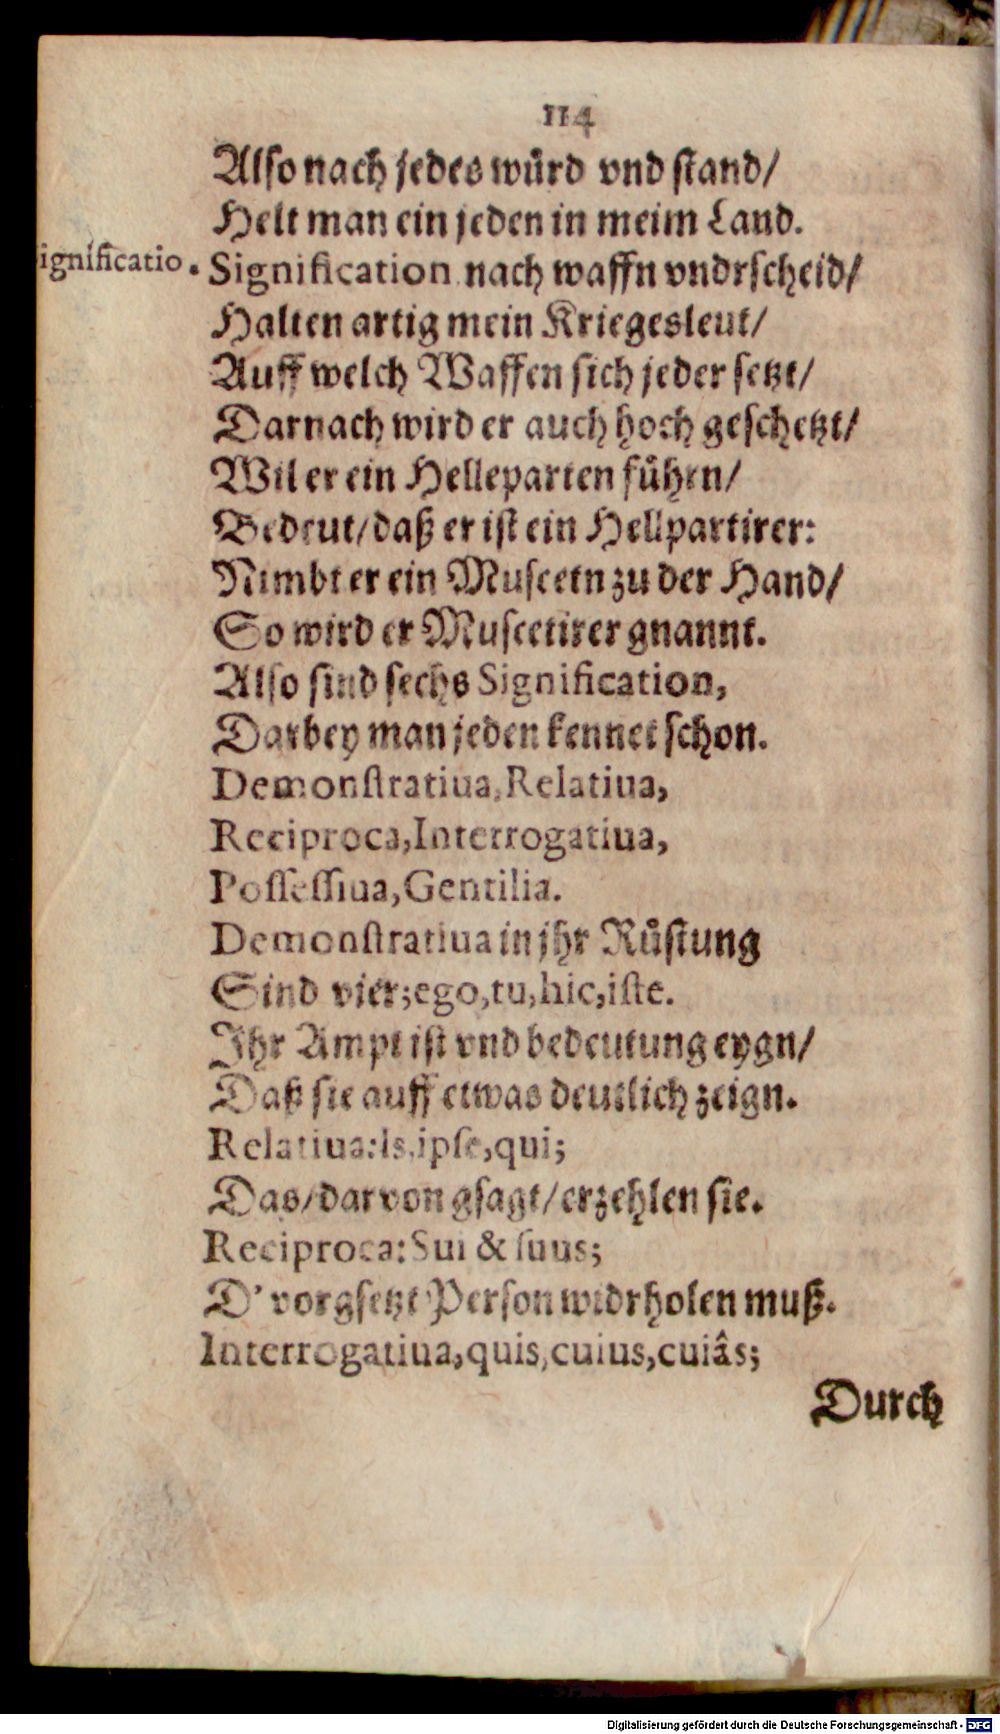 114
Also nach jedes würd vnd stand/
Helt man ein jeden in meim Land.
ignificatio.
Signification nach waffn vndrscheid/
Halten artig mein Kriegesleut/
Auff welch Waffen sich jeder setzt/
Darnach wird er auch hoch geschetzt/
Wil er ein Helleparten führn/
Bedeut/daß er ist ein Hellpartirer:
Nimbt er ein Muscetn zu der Hand/
So wird er Muscetirer gnannt.
Also sind sechs Signification,
Darbey man jeden kennet schon.
Demonstratiua, Relatiua,
Reciproca, Interrogatiua,
Possessiua, Gentilia.
Demonstratiua in jhr Rüstung
Sind vier; ego, tu, hic, iste.
Ihr Ampt ist vnd bedeutung eygn/
Daß sie auff etwas deutlich zeign.
Relatiua: Is, ipse, qui;
Das/darvon gsagt/erzehlen sie.
Reciproca: Sui & suus;
D' vorgsetzt Person widrholen muß.
Interrogatiua, quis, cuius, cuiâs;
Durch
Digitalisierung gefördert durch die Deutsche Forschungsgemeinschaft - DFG